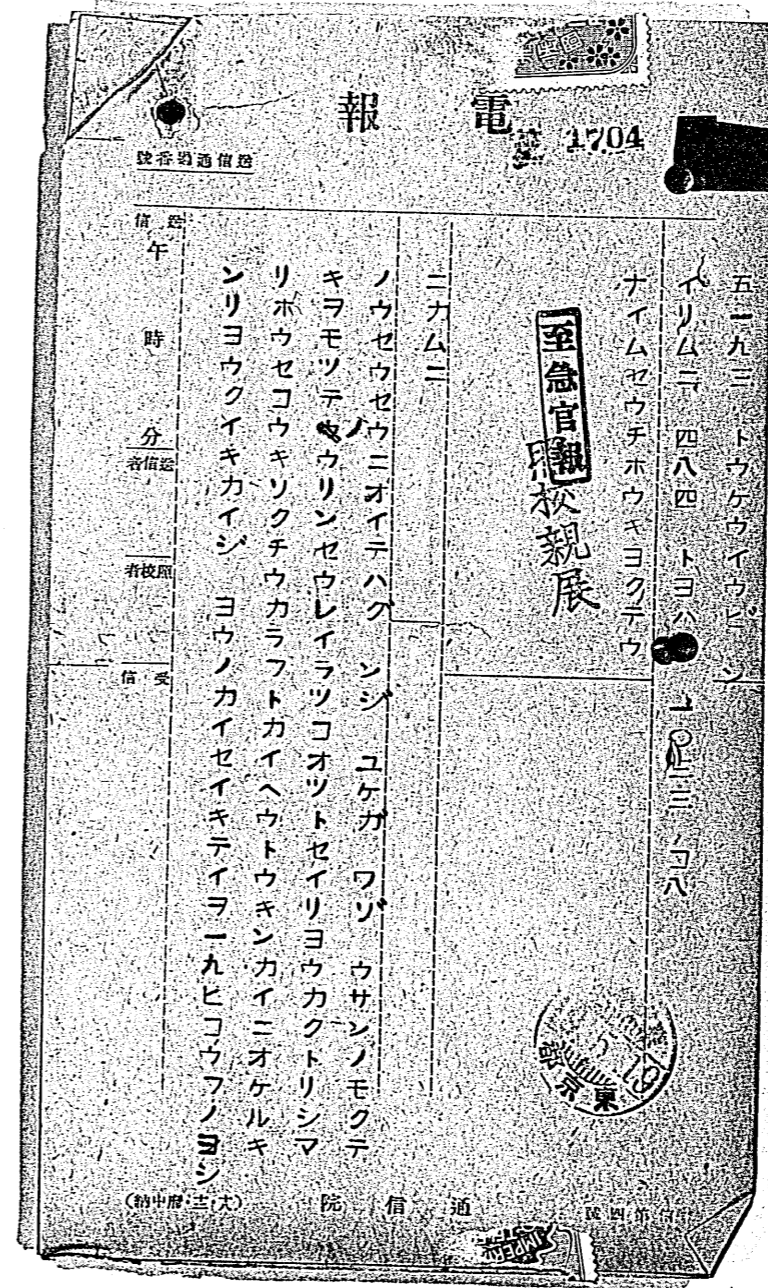 電報
1704
送信通過番號
五一九三 トウケウイウビン
イリムニ 四八四 トヨハ 一〇三三 コハ
ナイムセウチホウキヨクテウ
至急官報
照校親展
ニカムニ
ノウセウセウニオイテハグンジユケガワゾウサンノモクテ
キヲモツテノウリンセウレイラツコオツトセイリヨウカクトリシマ
リホウセコウキソクチウカラフトカイヘウトウキンカイニオケルキ
ンリヨウクイキカイジヨウノカイセイキテイヲ一九ヒコウフノヨシ
送信
午
時
分
送信者
照校者
受信
東京
遞信院
(大・士・府中納)